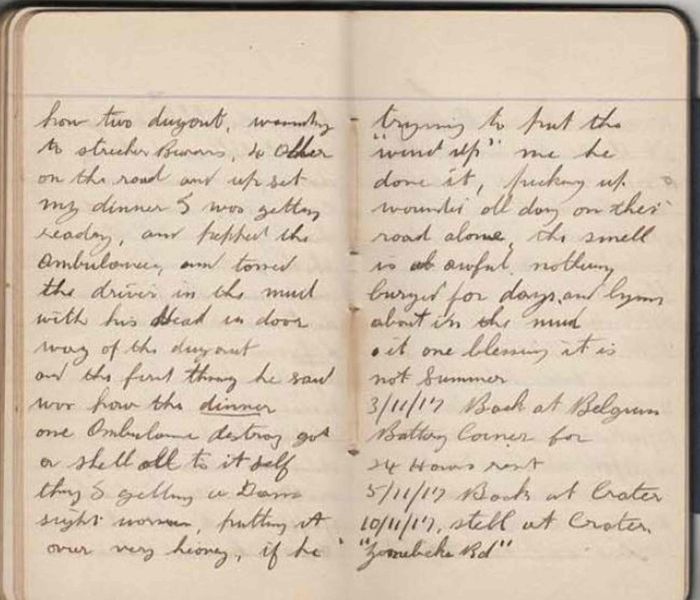 how two dugout, wounding
to strecher Bearers, 4 other
on the road and up set
my dinner I was getting
ready, and pepped the
Ambulance, and tossed
the driver in the mud
with his Head in door
way of the dugout
and the first thing he said
was how the dinner
one Ambulance destroy got
a shell all to it self
they I getting a Dam
sight worse, putting it
over very heavy, if he
trying to put the
"wind up" me he
done it, picking up
wounded all day on this
road alone, the smell
is awful, nothing
buryed for days, and lying
about in the mud
it one blessing it is
not Summer
3/11/17 Back at Belgium
Battery Corner for
24 Hours rest
5/11/17 Back at Crater
10/11/17, still at Crater
"Zonnebeke Rd"